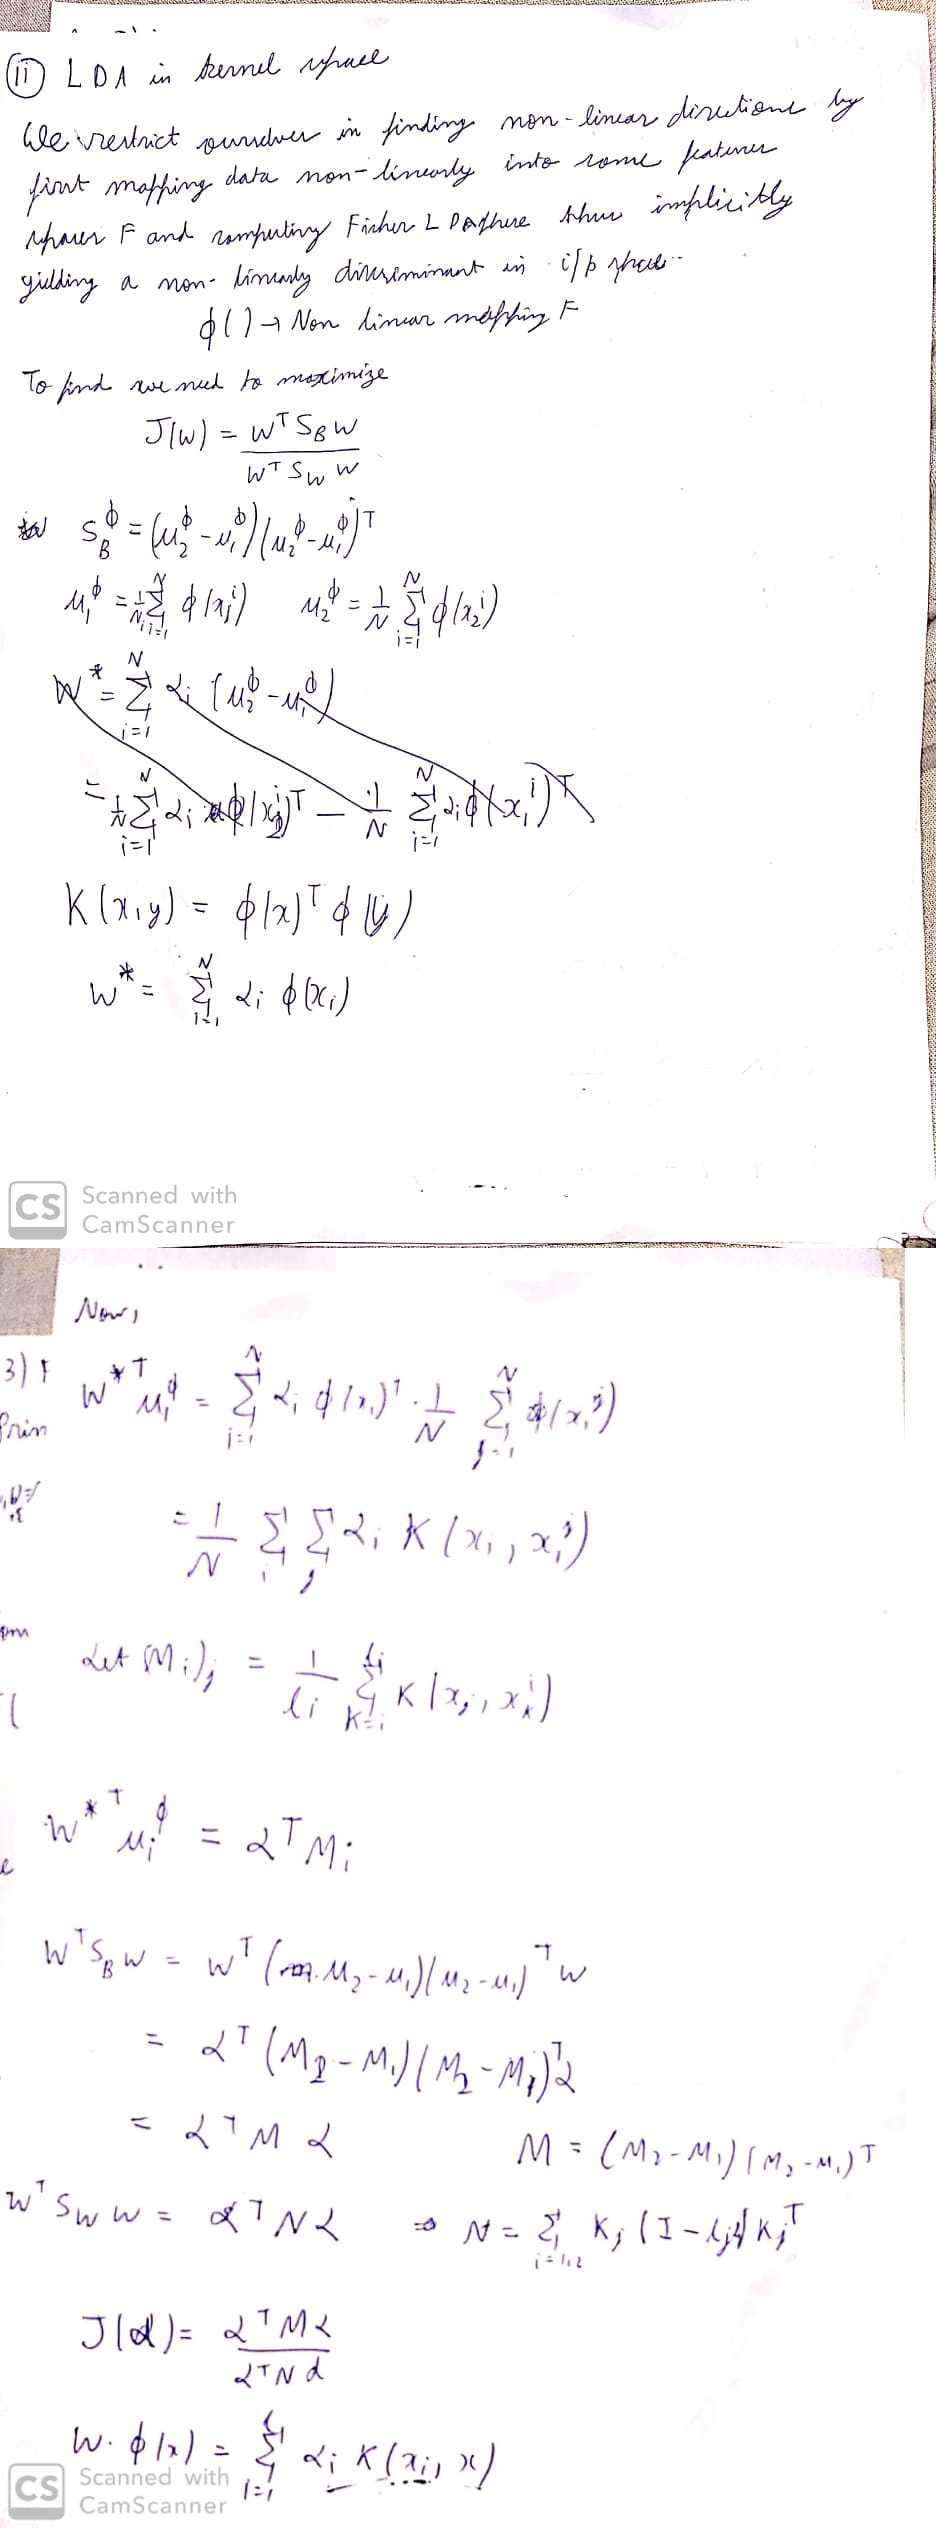 (ii) LDA in kernel space
We restrict ourselves in finding non-linear directions by
first mapping data non-linearly into some features
spaces F and computing Fisher LDA there thus implicitly
yielding a non-linearly discriminant in i/p space.
φ( ) → Non linear mapping F
To find we need to maximize
J(W) = W^T S_B W / W^T S_W W
S_B^φ = (μ_2^φ - μ_1^φ)(μ_2^φ - μ_1^φ)^T
μ_1^φ = 1/N Σ_{i=1}^N φ(x_1^i)   μ_2^φ = 1/N Σ_{i=1}^N φ(x_2^i)
W^* = Σ_{i=1}^N α_i (μ_2^φ - μ_1^φ)
= 1/N Σ_{i=1}^N α_i φ(x_2^i)^T - 1/N Σ_{i=1}^N α_i φ(x_1^i)^T
K(x,y) = φ(x)^T φ(y)
W^* = Σ_{i=1}^N α_i φ(x_i)
CS Scanned with
CamScanner
Now,
3)
W^{*T} μ_1^φ = Σ_{i=1}^N α_i φ(x_i)^T . 1/N Σ_{j=1}^N φ(x_1^j)
Prin
= 1/N Σ_i Σ_j α_i K(x_i, x_1^j)
Let (M_i)_j = 1/l_i Σ_{k=i}^{l_i} K(x_j, x_k^i)
W^{*T} μ_i^φ = α^T M_i
W^T S_B W = W^T (μ_2 - μ_1)(μ_2 - μ_1)^T W
= α^T (M_2 - M_1)(M_2 - M_1)^T α
= α^T M α   M = (M_2 - M_1)(M_2 - M_1)^T
W^T S_W W = α^T N α ⇒ N = Σ_{i=1,2} K_j (I - l_j) K_j^T
J(α) = α^T M α / α^T N α
W. φ(x) = Σ_{i=1}^{l} α_i K(x_i, x)
CS Scanned with
CamScanner